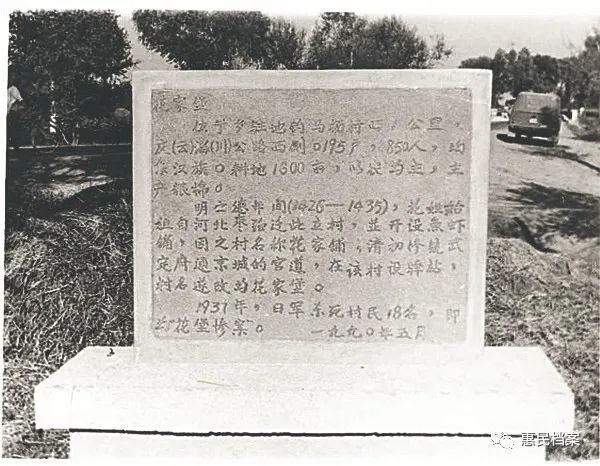 花家堡
位于乡驻地钓马杨村西1公里，
庆(云)淄(川)公路西侧。195户，850人，均
系汉族。耕地1600亩，以农为主，主
产粮棉。
明宣德年间(1426—1435)，花姓始
祖自河北枣强迁此立村，並开设魚虾
铺，因之村名称花家铺；清初修筑武
定府通京城的官道，在该村设驿站，
村名遂改为花家堡。
1937年，日军杀死村民18名，即
为“花堡惨案”。 一九九〇年五月
惠民档案